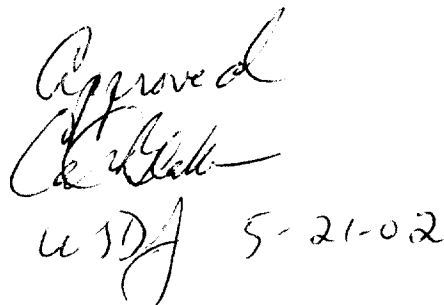 Approved
USDJ 5-21-02